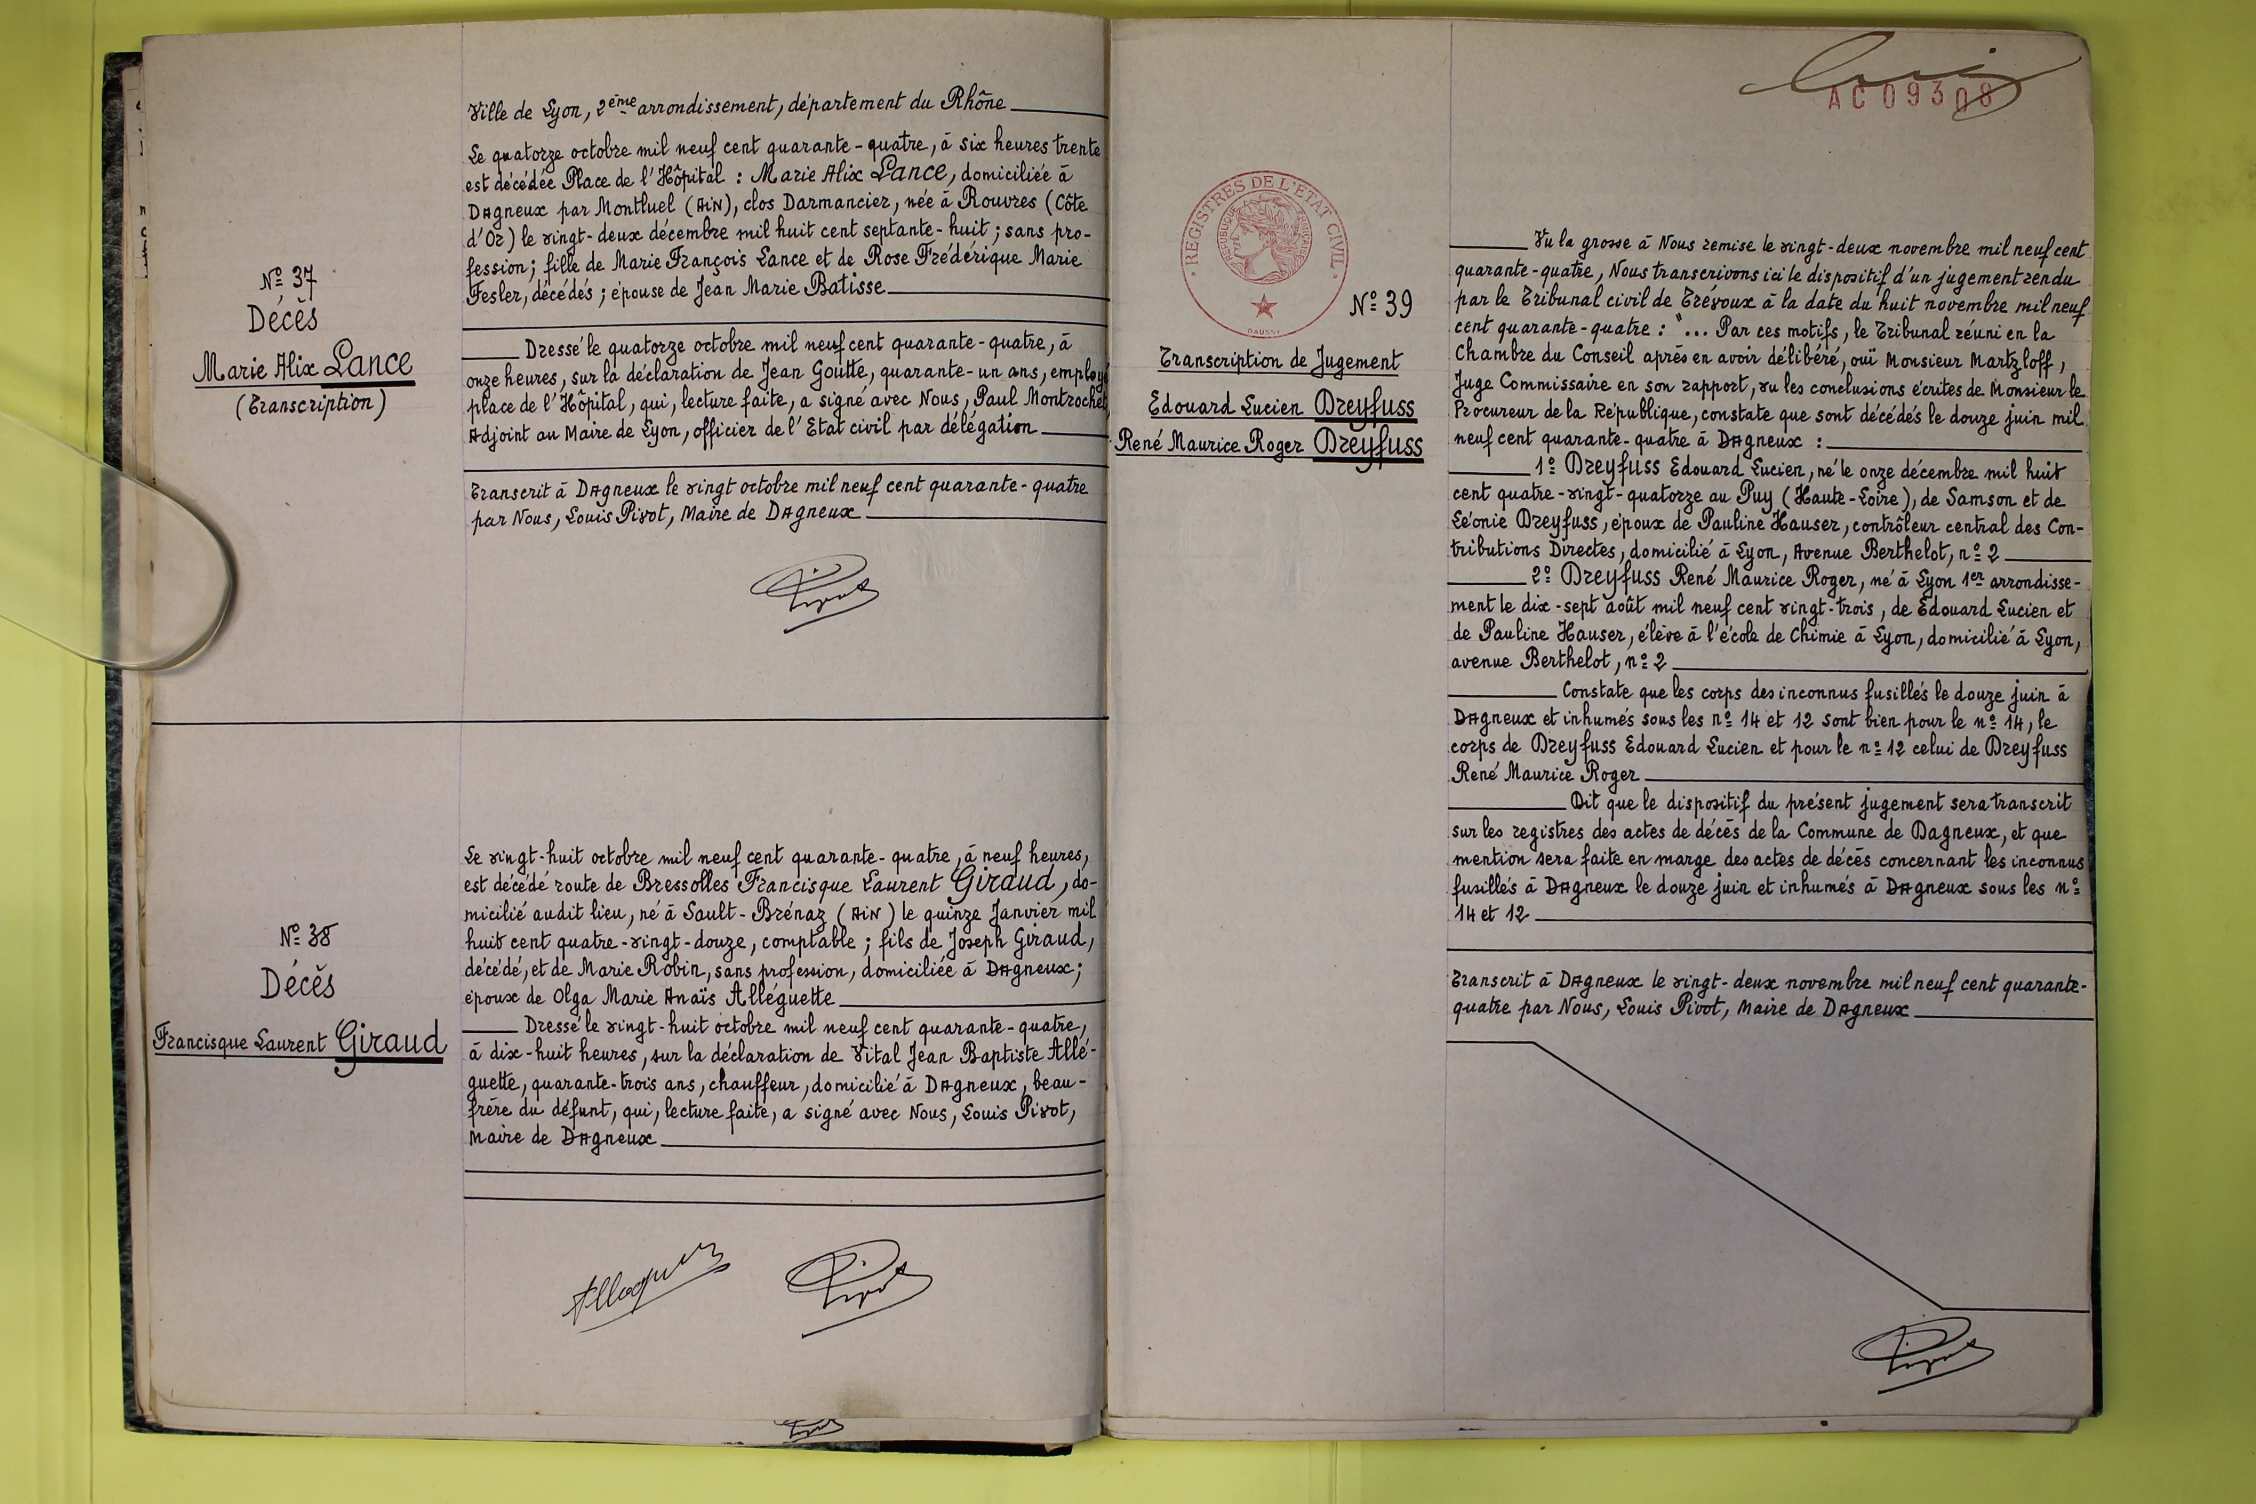 Ville de Lyon, 2ème arrondissement, département du Rhône
Le quatorze octobre mil neuf cent quarante-quatre, à six heures trente
est décédée Place de l'Hôpital : Marie Alix Lance, domiciliée à
Dagneux par Montluel (Ain), clos Darmancier, née à Rouvres (Côte
d'Or) le vingt-deux décembre mil huit cent septante-huit ; sans pro-
fession ; fille de Marie François Lance et de Rose Frédérique Marie
Fesler, décédés ; épouse de Jean Marie Batisse
N° 37
Décès
Marie Alix Lance
(Transcription)
Dressé le quatorze octobre mil neuf cent quarante-quatre, à
onze heures, sur la déclaration de Jean Goutte, quarante-un ans, employé
place de l'Hôpital, qui, lecture faite, a signé avec Nous, Paul Montrochet,
Adjoint au Maire de Lyon, officier de l'Etat civil par délégation
Transcrit à Dagneux le vingt octobre mil neuf cent quarante-quatre
par Nous, Louis Pivot, Maire de Dagneux
Pivot
Le vingt-huit octobre mil neuf cent quarante-quatre, à neuf heures,
est décédé route de Bressolles Francisque Laurent Giraud, do-
micilié audit lieu, né à Sault-Brénaz (Ain) le quinze Janvier mil
huit cent quatre-vingt-douze, comptable ; fils de Joseph Giraud,
décédé, et de Marie Robin, sans profession, domiciliée à Dagneux ;
époux de Olga Marie Anaïs Alléguette
N° 38
Décès
Francisque Laurent Giraud
Dressé le vingt-huit octobre mil neuf cent quarante-quatre,
à dix-huit heures, sur la déclaration de Vital Jean Baptiste Allé-
guette, quarante-trois ans, chauffeur, domicilié à Dagneux, beau-
frère du défunt, qui, lecture faite, a signé avec Nous, Louis Pivot,
Maire de Dagneux
Pivot
AC09308
REGISTRES DE L'ETAT CIVIL
REPUBLIQUE FRANÇAISE
DAUSSY
N° 39
Transcription de Jugement
Edouard Lucien Dreyfuss
René Maurice Roger Dreyfuss
Vu la grosse à Nous remise le vingt-deux novembre mil neuf cent
quarante-quatre, Nous transcrivons ici le dispositif d'un jugement rendu
par le Tribunal civil de Trévoux à la date du huit novembre mil neuf
cent quarante-quatre : "... Par ces motifs, le Tribunal réuni en la
Chambre du Conseil après en avoir délibéré, ouï Monsieur Martzloff,
Juge Commissaire en son rapport, vu les conclusions écrites de Monsieur le
Procureur de la République, constate que sont décédés le douze juin mil
neuf cent quarante-quatre à Dagneux :
1° Dreyfuss Edouard Lucien, né le onze décembre mil huit
cent quatre-vingt-quatorze au Puy (Haute-Loire), de Samson et de
Léonie Dreyfuss, époux de Pauline Hauser, contrôleur central des Con-
tributions Directes, domicilié à Lyon, Avenue Berthelot, n° 2
2° Dreyfuss René Maurice Roger, né à Lyon 1er arrondisse-
ment le dix-sept août mil neuf cent vingt-trois, de Edouard Lucien et
de Pauline Hauser, élève à l'école de Chimie à Lyon, domicilié à Lyon,
avenue Berthelot, n° 2
Constate que les corps des inconnus fusillés le douze juin à
Dagneux et inhumés sous les n° 14 et 12 sont bien pour le n° 14, le
corps de Dreyfuss Edouard Lucien et pour le n° 12 celui de Dreyfuss
René Maurice Roger
Dit que le dispositif du présent jugement sera transcrit
sur les registres des actes de décès de la Commune de Dagneux, et que
mention sera faite en marge des actes de décès concernant les inconnus
fusillés à Dagneux le douze juin et inhumés à Dagneux sous les n°
14 et 12
Transcrit à Dagneux le vingt-deux novembre mil neuf cent quarante-
quatre par Nous, Louis Pivot, Maire de Dagneux
Pivot